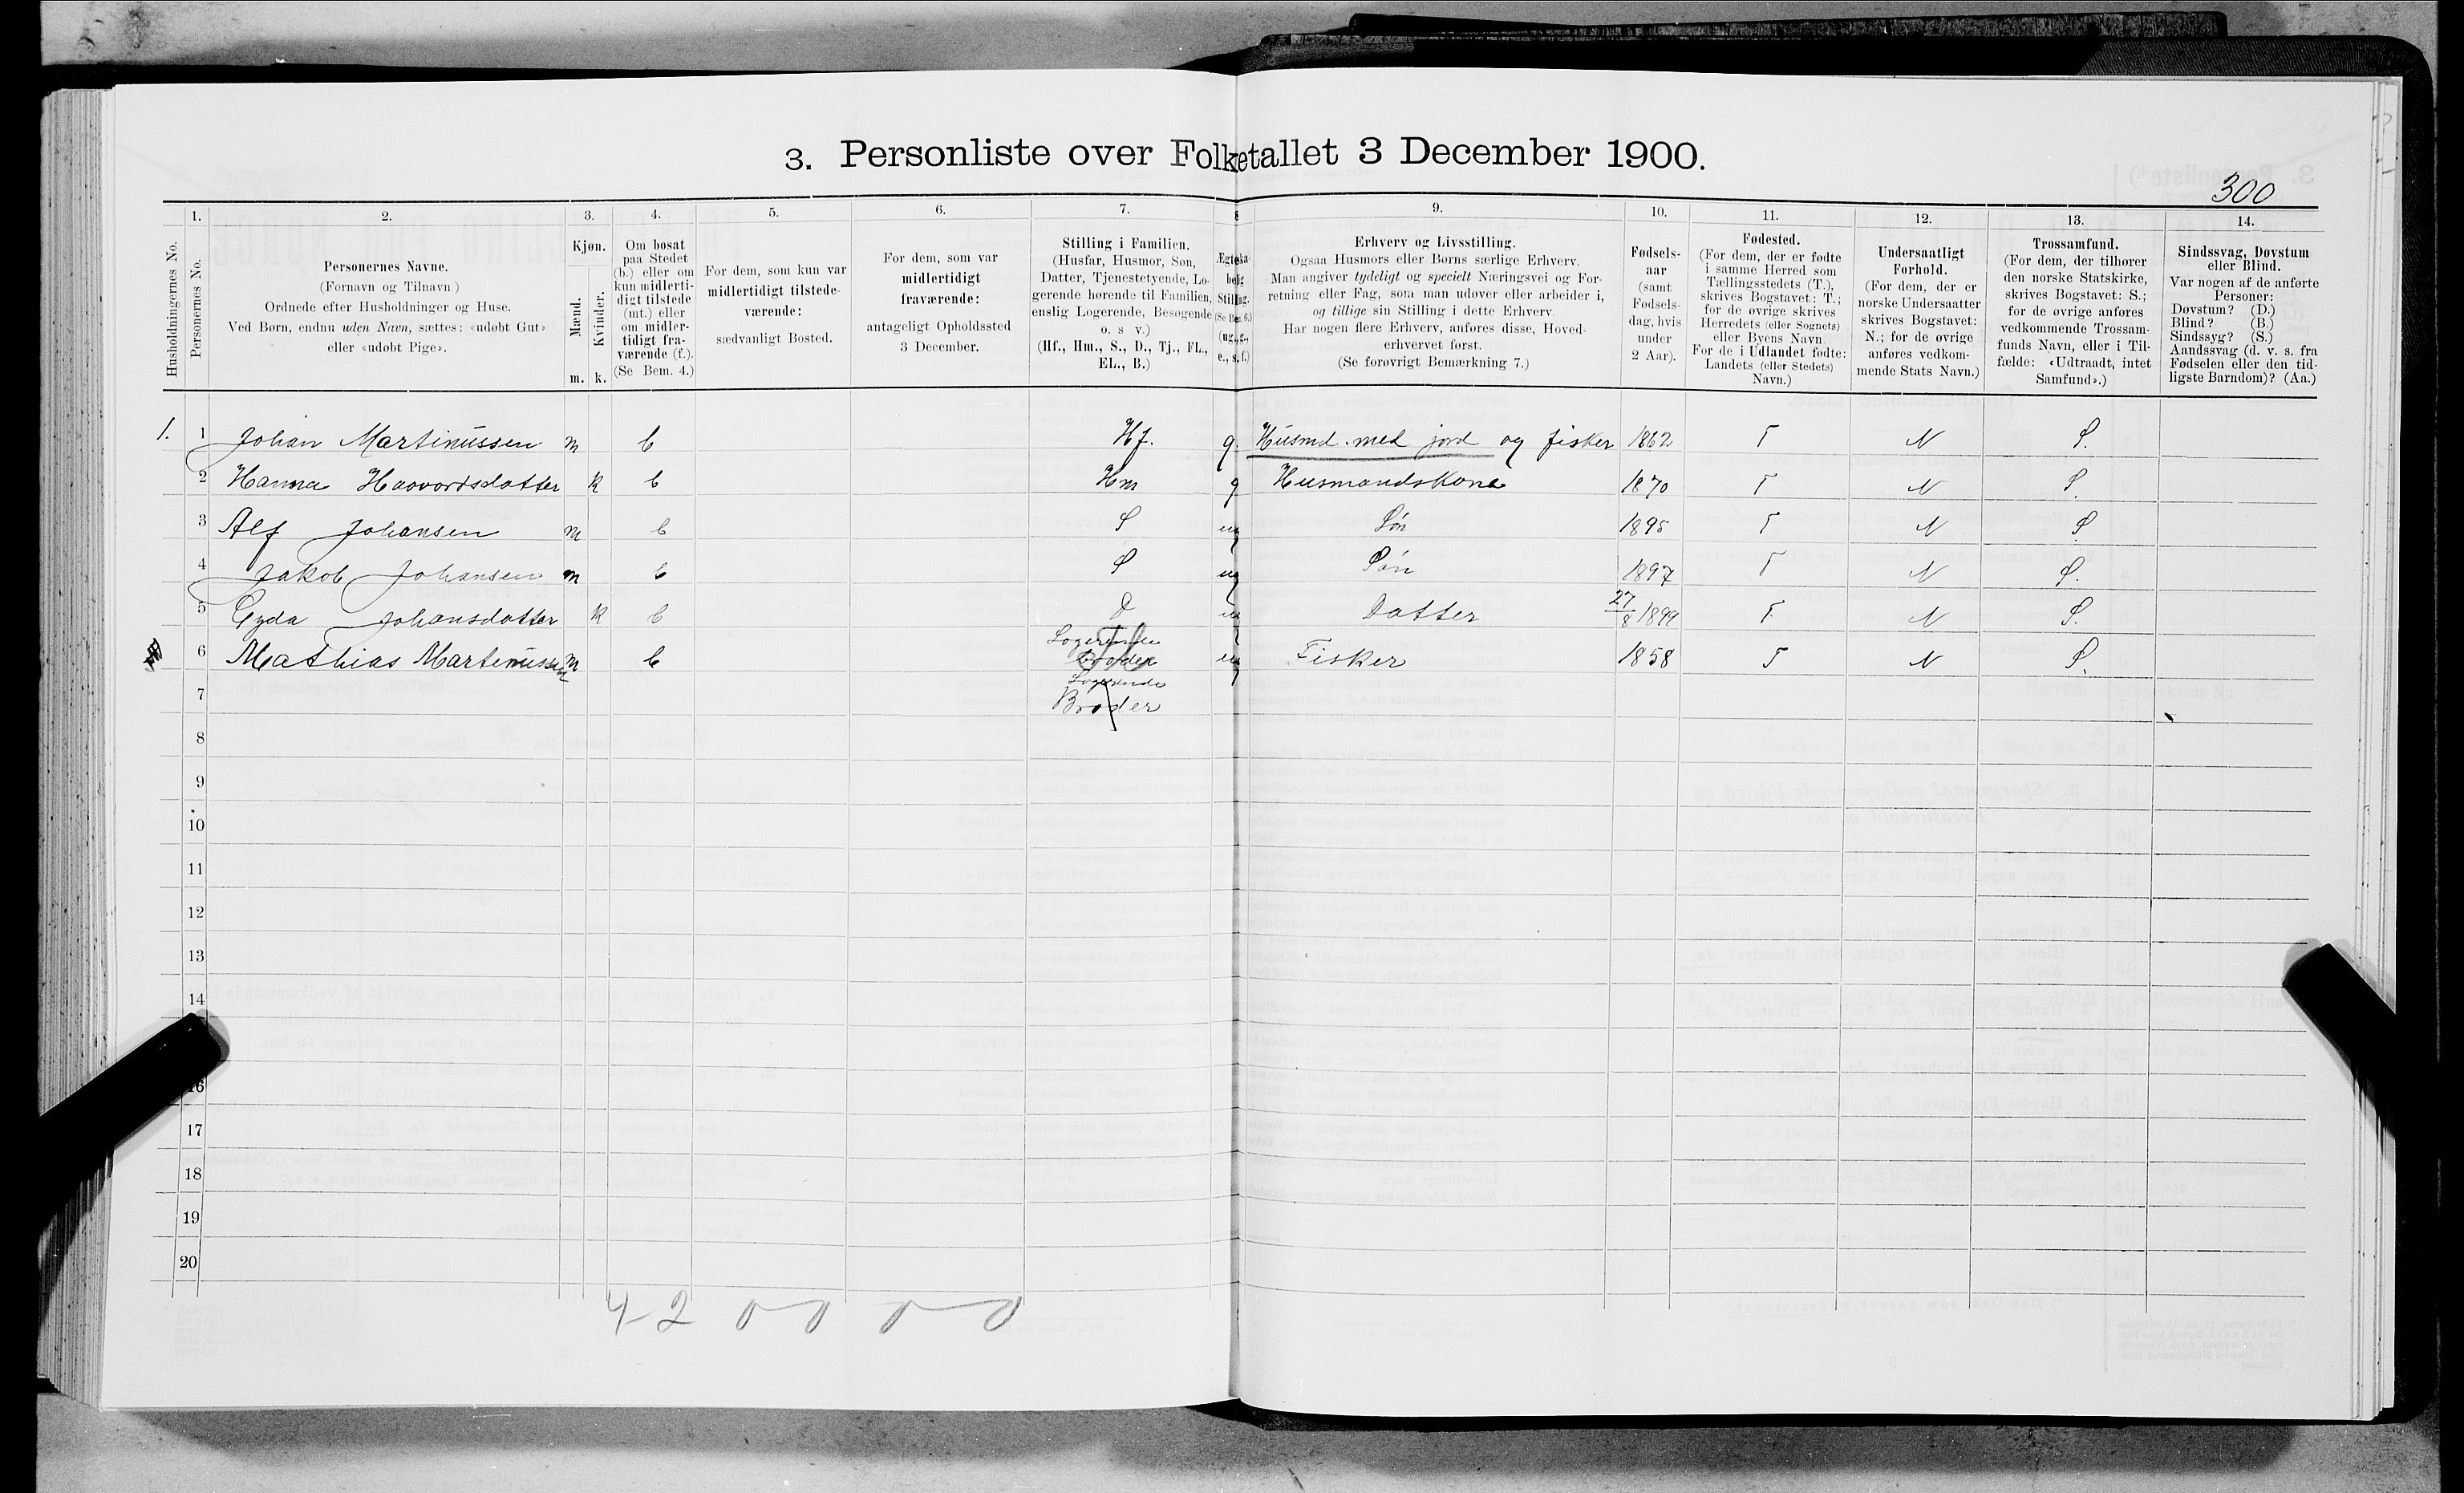 3. Personliste over Folketallet 3 December 1900.
300
1. 2. 3. 4. 5. 6. 7. 8 9. 10. 11. 12. 13. 14.
Husholdningernes No.
Personernes No.
Personernes Navne.
(Fornavn og Tilnavn)
Ordnede efter Husholdninger og Huse.
Ved Børn, endnu uden Navn, sættes: «udøbt Gut»
eller «udøbt Pige».
Kjøn.
Mænd.
Kvinder.
m. k.
Om bosat
paa Stedet
(b.) eller om
kun midlerti-
digt tilstede
(mt.) eller
om midler-
tidigt fra-
værende (f.).
(Se Bem. 4.)
For dem, som kun var
midlertidigt tilstede-
værende:
sædvanligt Bosted.
For dem, som var
midlertidigt
fraværende:
antageligt Opholdssted
3 December.
Stilling i Familien.
(Husfar, Husmor, Søn,
Datter, Tjenestetyende, Lo-
gerende hørende til Familien,
enslig Logerende, Besøgende
o. s v.)
(Hf., Hm., S., D., Tj., FL.,
EL., B.)
Erhverv og Livsstilling.
Ogsaa Husmors eller Børns særlige Erhverv.
Man angiver tydeligt og specielt Næringsvei og For-
retning eller Fag, som man udøver eller arbeider i,
og tillige sin Stilling i dette Erhverv.
Har nogen flere Erhverv, anføres disse, Hoved-
erhvervet først.
(Se forøvrigt Bemærkning 7.)
Fødsels-
aar
(samt
Fødsels-
dag, hvis
under
2 Aar).
Fødested.
(For dem, der er fødte
i samme Herred som
Tællingsstedets (T.),
skrives Bogstavet: T.;
for de øvrige skrives
Herredets (eller Sognets)
eller Byens Navn
For de i Udlandet fødte:
Landets (eller Stedets)
Navn.)
Undersaatligt
Forhold.
(For dem, der er
norske Undersaatter
skrives Bogstavet:
N.; for de øvrige
anføres vedkom-
mende Stats Navn.)
Trossamfund.
(For dem, der tilhører
den norske Statskirke,
skrives Bogstavet: S.;
for de øvrige anføres
vedkommende Trossam-
funds Navn, eller i Til-
fælde: «Udtraadt, intet
Samfund».)
Sindssvag, Døvstum
eller Blind.
Var nogen af de anførte
Personer:
Døvstum? (D.)
Blind? (B.)
Sindssyg? (S.)
Aandssvag (d. v. s. fra
Fødselen eller den tid-
ligste Barndom)? (Aa.)
1. 1 Johan Martinussen m b Hf. g. Husmd. med jord og fisker 1862 T N S.
2 Hanna Haavardsdatter k b Hm g Husmandskone 1870 T N S.
3 Alf Johansen m b S ug Søn 1895 T N S.
4 Jakob Johansen m b S ug Søn 1897 T N S.
5 Gyda Johansdatter k b D ug Datter 27/8 1899 T N S.
6 Mathias Martinussen m b Logerende Broder ug Fisker 1858 T N S.
7 Logerende
Broder
8
9
10
11
12
13
14
16
17
18
19
20
4-2 0 0 0 0